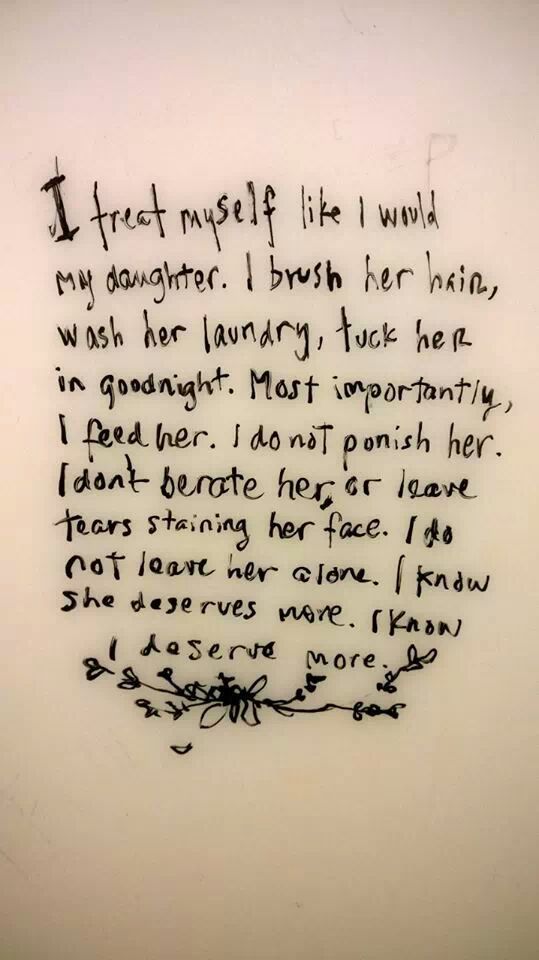 I treat myself like I would
my daughter. I brush her hair,
wash her laundry, tuck her
in goodnight. Most importantly,
I feed her. I do not ponish her.
I don't berate her, or leave
tears staining her face. I do
not leave her alone. I know
she deserves more. I know
I deserve more.